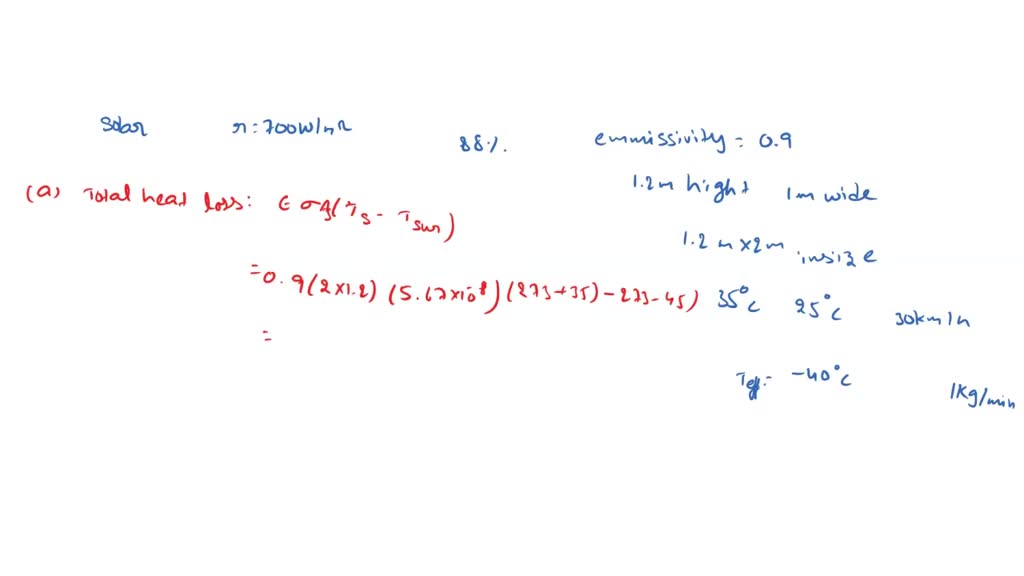 Solar r=700W/m2
88%. emmissivity = 0.9
(a) Total heat loss: ∈σAs(Ts - Tsur)
1.2m hight 1m wide
1.2m x2m insize
=0.9(2x1.2) (5.67x10-8) (273+35) - 273-45)
35°c 25°c 30km/h
=
Teff:- -40°c
1kg/min